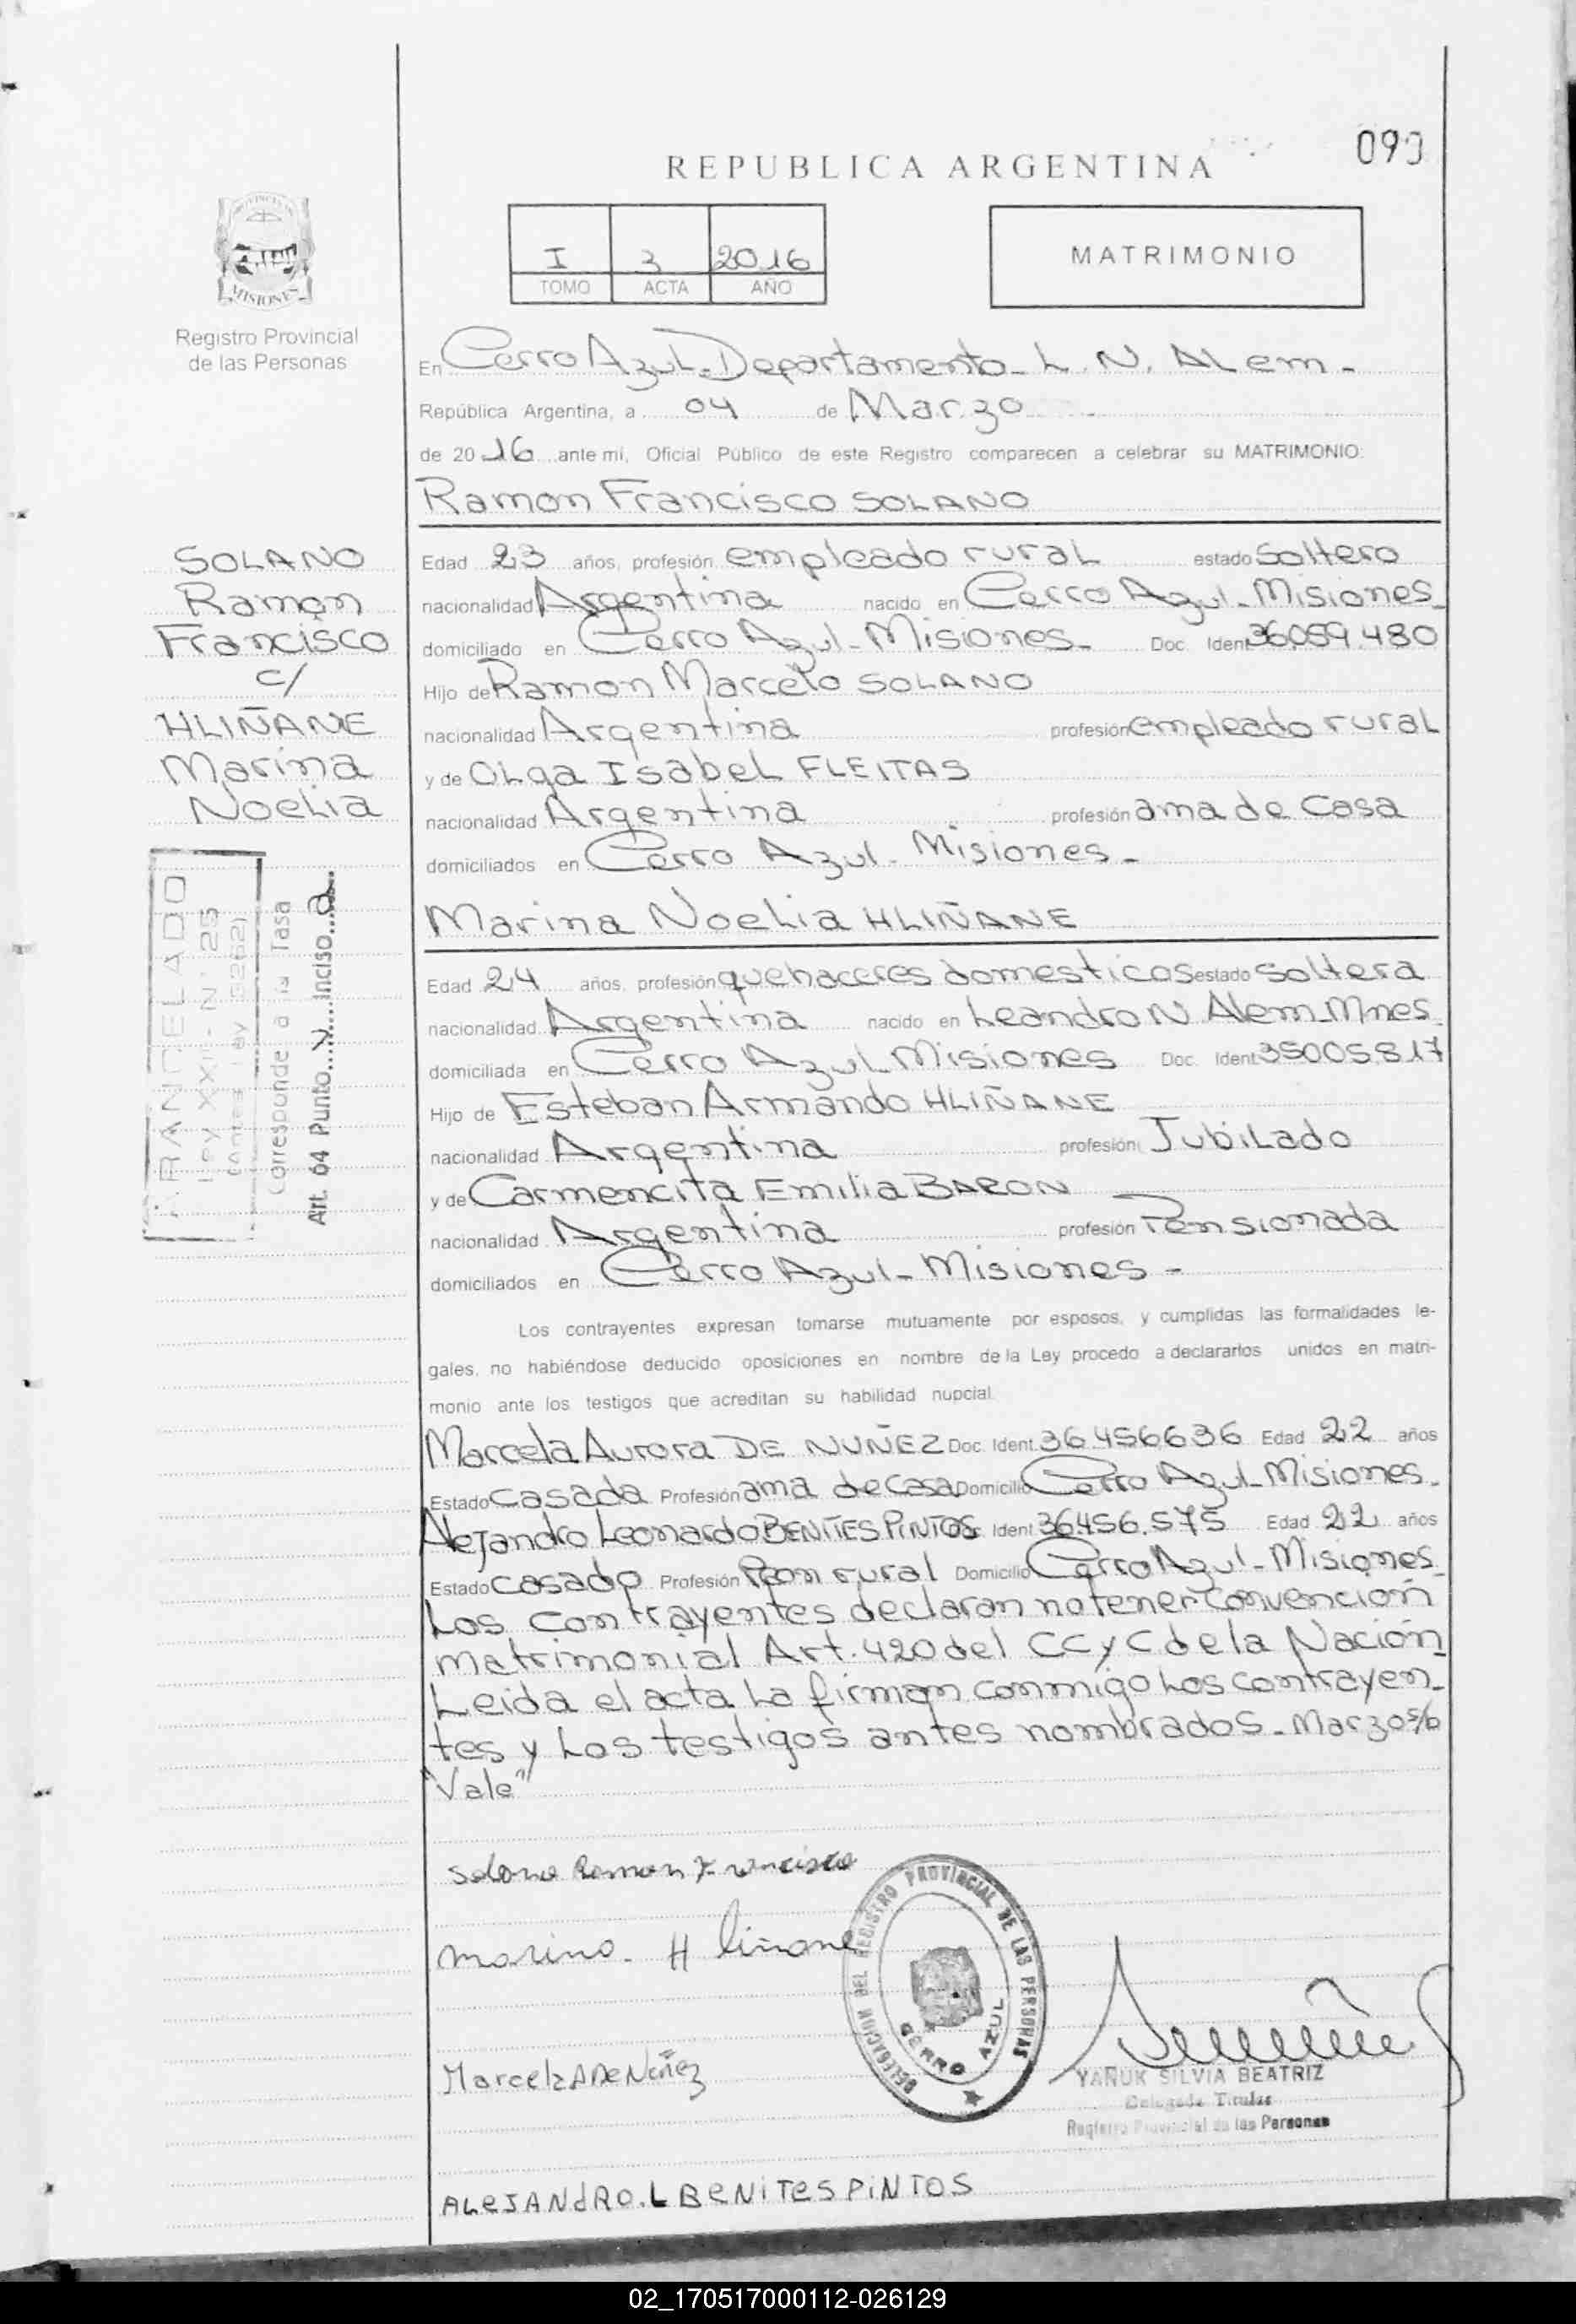 REPUBLICA ARGENTINA
I 3 2016
TOMO ACTA AÑO
MATRIMONIO
MISIONES
Registro Provincial
de las Personas
En Cerro Azul-Departamento-L.N. ALem-
República Argentina, a 04 de Marzo
de 2016 ante mi, Oficial Público de este Registro comparecen a celebrar su MATRIMONIO:
Ramon Francisco SOLANO
SOLANO
Ramon
Francisco
c/
HLIÑANE
Marina
Noelia
Edad 23 años, profesión empleado rural estado Soltero
nacionalidad Argentina nacido en Cerro Azul-Misiones-
domiciliado en Cerro Azul-Misiones- Doc. Ident 36.059.480
Hijo de Ramon Marcelo SOLANO
nacionalidad Argentina profesión empleado rural
y de Olga Isabel FLEITAS
nacionalidad Argentina profesión ama de casa
domiciliados en Cerro Azul-Misiones-
Marina Noelia HLIÑANE
ARANCELADO
Ley XXII - N° 25
(Antes Ley 3262)
Corresponde a la Tasa
Art. 64 Punto V Inciso a
Edad 24 años, profesión quehaceres domesticos estado Soltera
nacionalidad Argentina nacido en Leandro N Alem-Mnes
domiciliada en Cerro Azul-Misiones Doc. Ident 35005.817
Hijo de Esteban Armando HLIÑANE
nacionalidad Argentina profesión Jubilado
y de Carmencita Emilia BARON
nacionalidad Argentina profesión Pensionada
domiciliados en Cerro Azul-Misiones-
Los contrayentes expresan tomarse mutuamente por esposos, y cumplidas las formalidades le-
gales, no habiéndose deducido oposiciones en nombre de la Ley procedo a declararlos unidos en matri-
monio ante los testigos que acreditan su habilidad nupcial.
Marcela Aurora DE NUÑEZ Doc. Ident. 36.456.636 Edad 22 años
Estado Casada Profesión ama de casa Domicilio Cerro Azul-Misiones-
Alejandro Leonardo BENITES PINTOS Ident. 36.456.575 Edad 22 años
Estado Casado Profesión Peon rural Domicilio Cerro Azul-Misiones-
Los contrayentes declaran no tener Convención
matrimonial Art. 420 del CC y C de la Nación
Leida el acta la firman conmigo los contrayen-
tes y los testigos antes nombrados-Marzo s/b
"Vale"
Solano Ramon Francisco
Marina. Hliñane
DELEGACION DEL REGISTRO PROVINCIAL DE LAS PERSONAS
CERRO AZUL
Marcela A De Nuñez
YAÑUK SILVIA BEATRIZ
Delegada Titular
Registro Provincial de las Personas
ALEJANDRO.L BENITES PINTOS
02_170517000112-026129